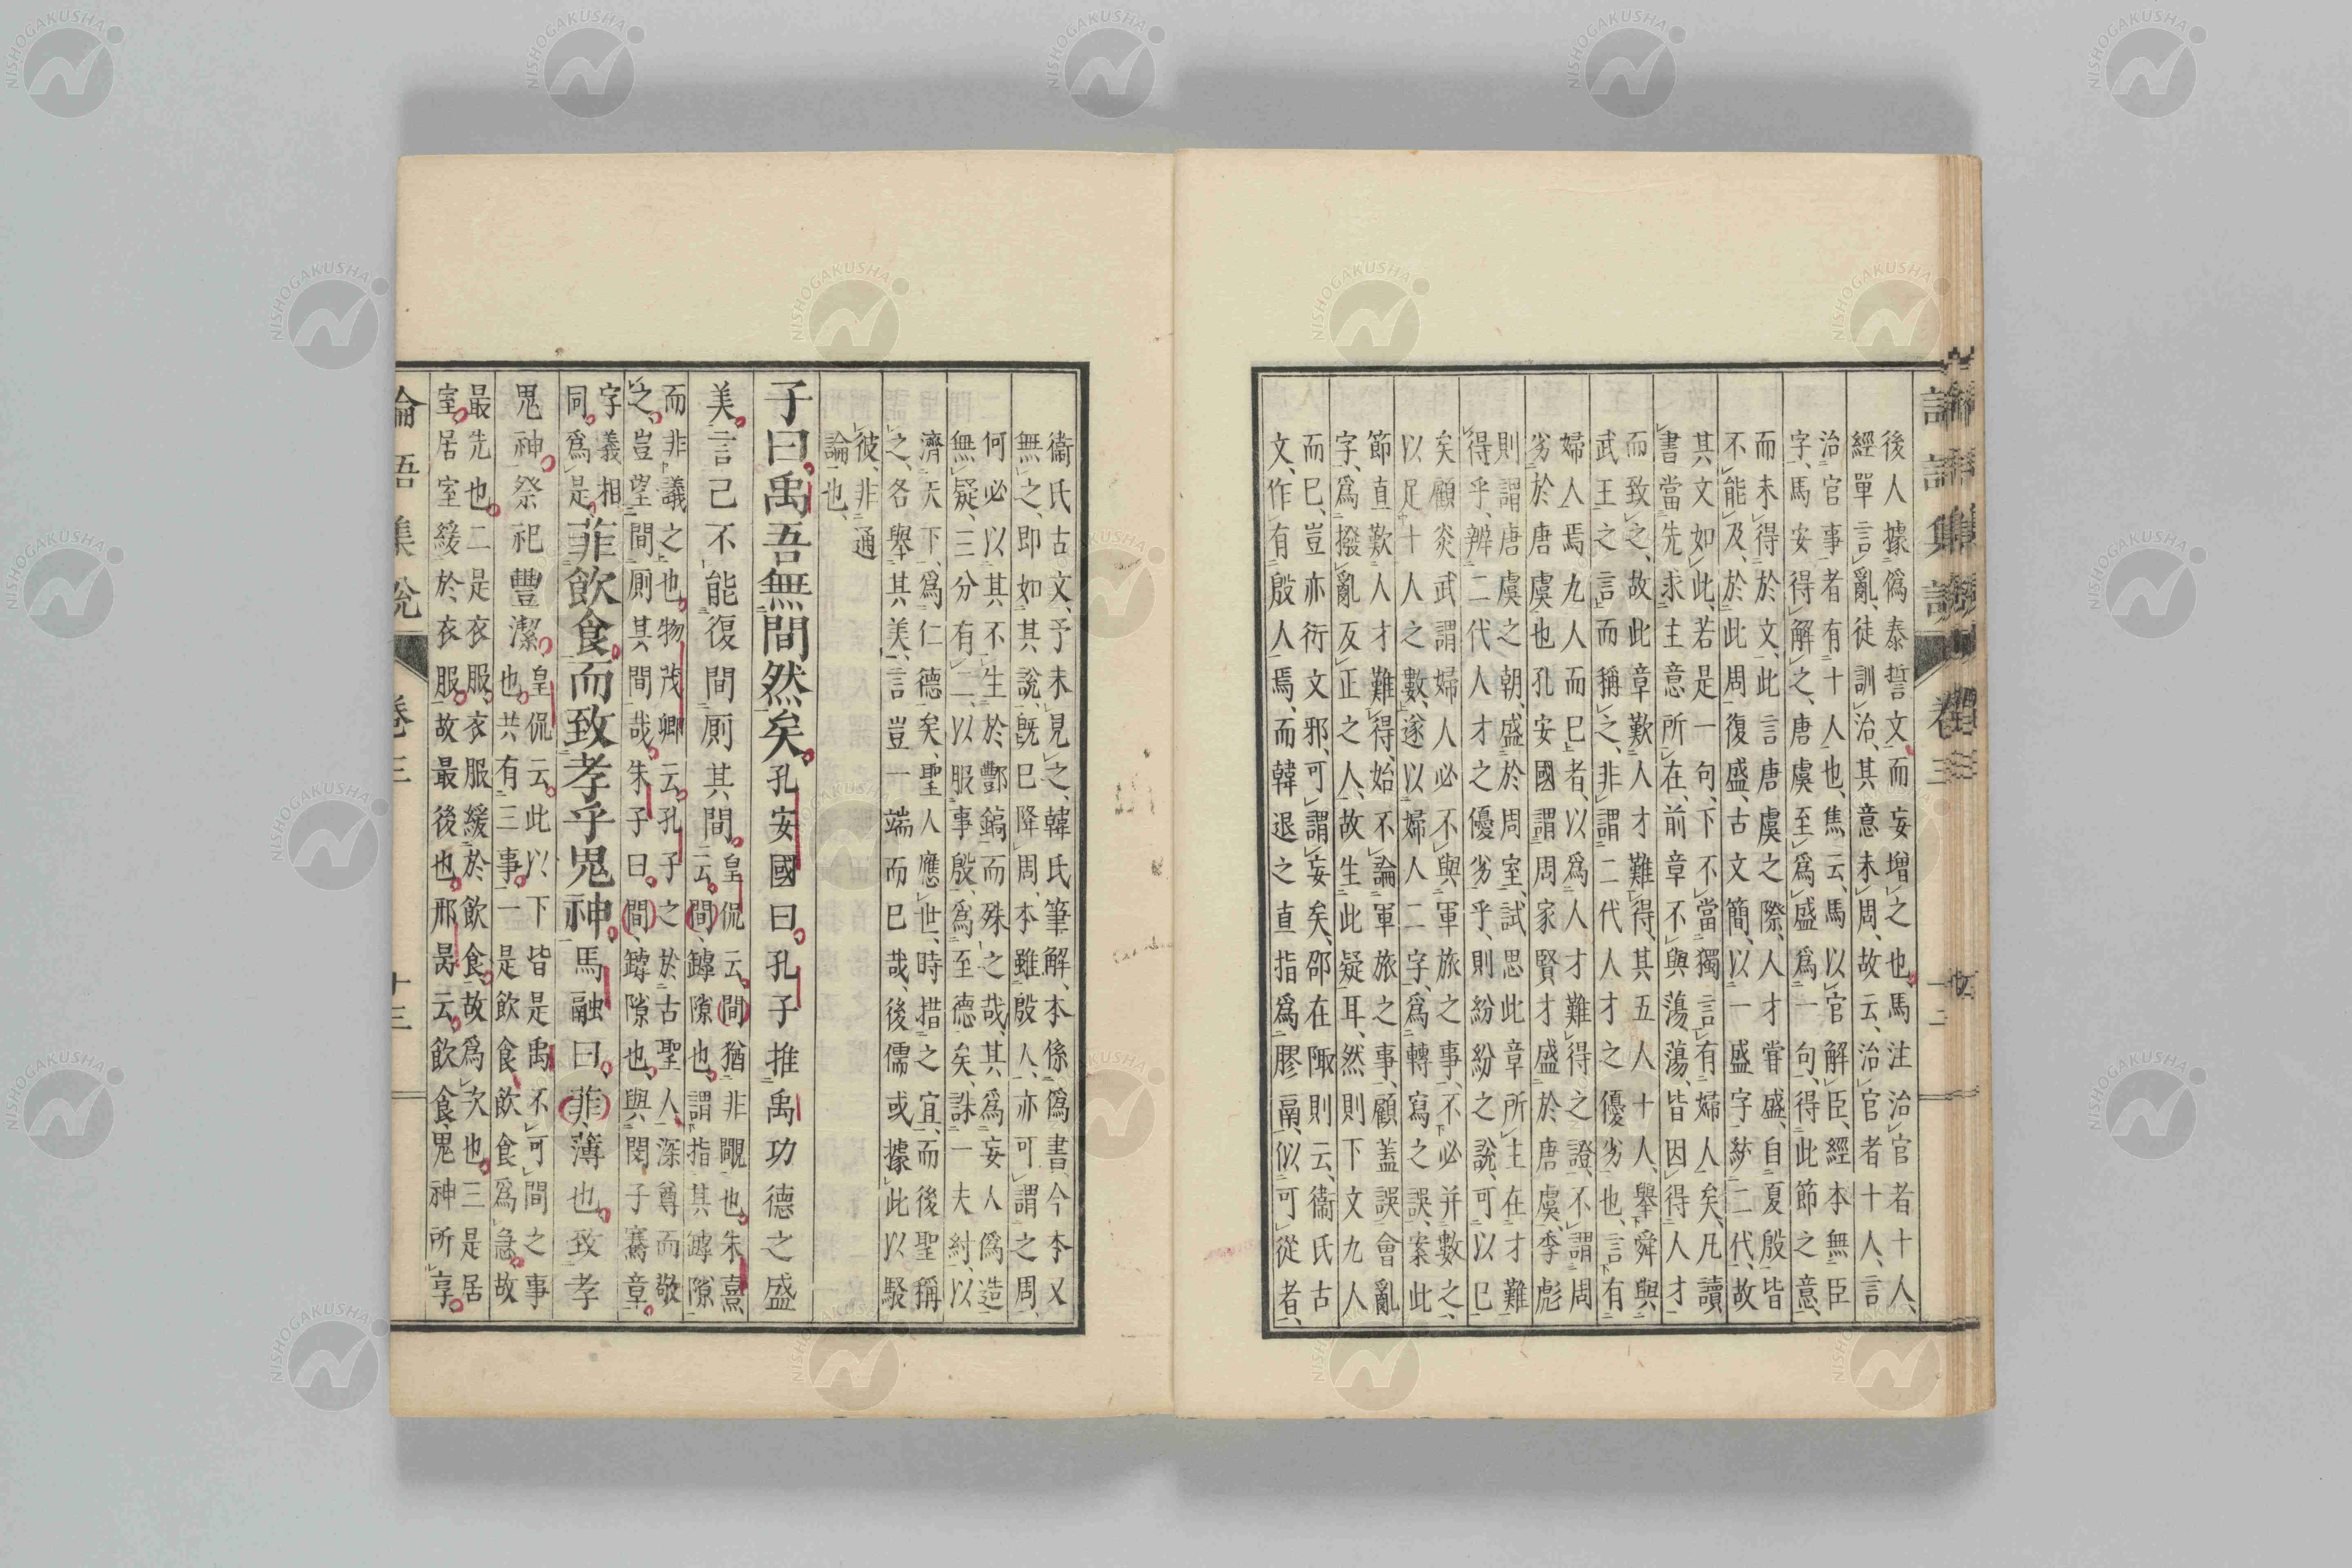 論語集說　卷三　十二
後人據僞泰誓文、而妄增之也。馬注治官者十人、
經單言亂、徒訓治、其意未周、故云、治官者十人、言
治官事者有十人也、焦云、馬以官解臣、經本無臣
字、馬安得解之、唐虞至爲盛爲一句、得此節之意、
而未得於文、此言唐虞之際、人才甞盛、自夏殷皆
不能及、於此周復盛、古文簡、以一盛字、紾二代、故
其文如此、若是一句、下不當獨言有婦人矣、凡讀
書當先求主意所在、前章不與蕩蕩、皆因得人才
而致之、故此章歎人才難得、其五人十人、舉舜與
武王之言而稱之、非謂二代人才之優劣也、言有
婦人焉九人而已者、以爲人才難得之證、不謂周
劣於唐虞也孔安國謂周家賢才盛於唐虞、李彪
則謂唐虞之朝、盛於周室、試思此章所主在才難
得乎、辨二代人才之優劣乎、則紛紛之說、可以已
矣顧炎武謂婦人必不與軍旅之事、不必并數之、
以足十人之數、遂以婦人二字、爲轉寫之誤、案此
節直歎人才難得、始不論軍旅之事、顧蓋誤會亂
字、爲撥亂反正之人、故生此疑耳、然則下文九人
而已、豈亦衍文邪、可謂妄矣、邵在陬則云、衞氏古
文、作有殷人焉、而韓退之直指爲膠鬲、似可從者、
衞氏古文、予未見之、韓氏筆解、本係僞書、今本又
無之、即如其說、旣已降周、本雖殷人、亦可謂之周、
何必以其不生於酆鎬而殊之哉、其爲妄人僞造
無疑、三分有二、以服事殷、爲至德矣、誅一夫紂、以
濟天下、爲仁德矣、聖人應世、時措之宜、而後聖稱
之、各舉其美、言豈一端而已哉、後儒或據此以駁
彼、非通
論也、
子曰。禹吾無間然矣。孔安國曰。孔子推禹功德之盛
美。言己不能復間厠其間。皇侃云。間猶非覸也。朱熹
云。間、罅隙也。謂指其罅隙
而非議之也。物茂卿云。孔子之於古聖人、深尊而敬
之。豈望間厠其間哉。朱子曰。間、罅隙也。與閔子騫章。
字義相
同。爲是。菲飮食。而致孝乎鬼神。馬融曰。菲、薄也。致孝
鬼神。祭祀豐潔。皇侃云。此以下皆是禹不可間之事
也。共有三事。一是飮食、飮食爲急。故
最先也。二是衣服。衣服緩於飮食。故爲次也。三是居
室。居室緩於衣服。故最後也。邢昺云。飮食、鬼神所享。
論語集說　卷三　十三